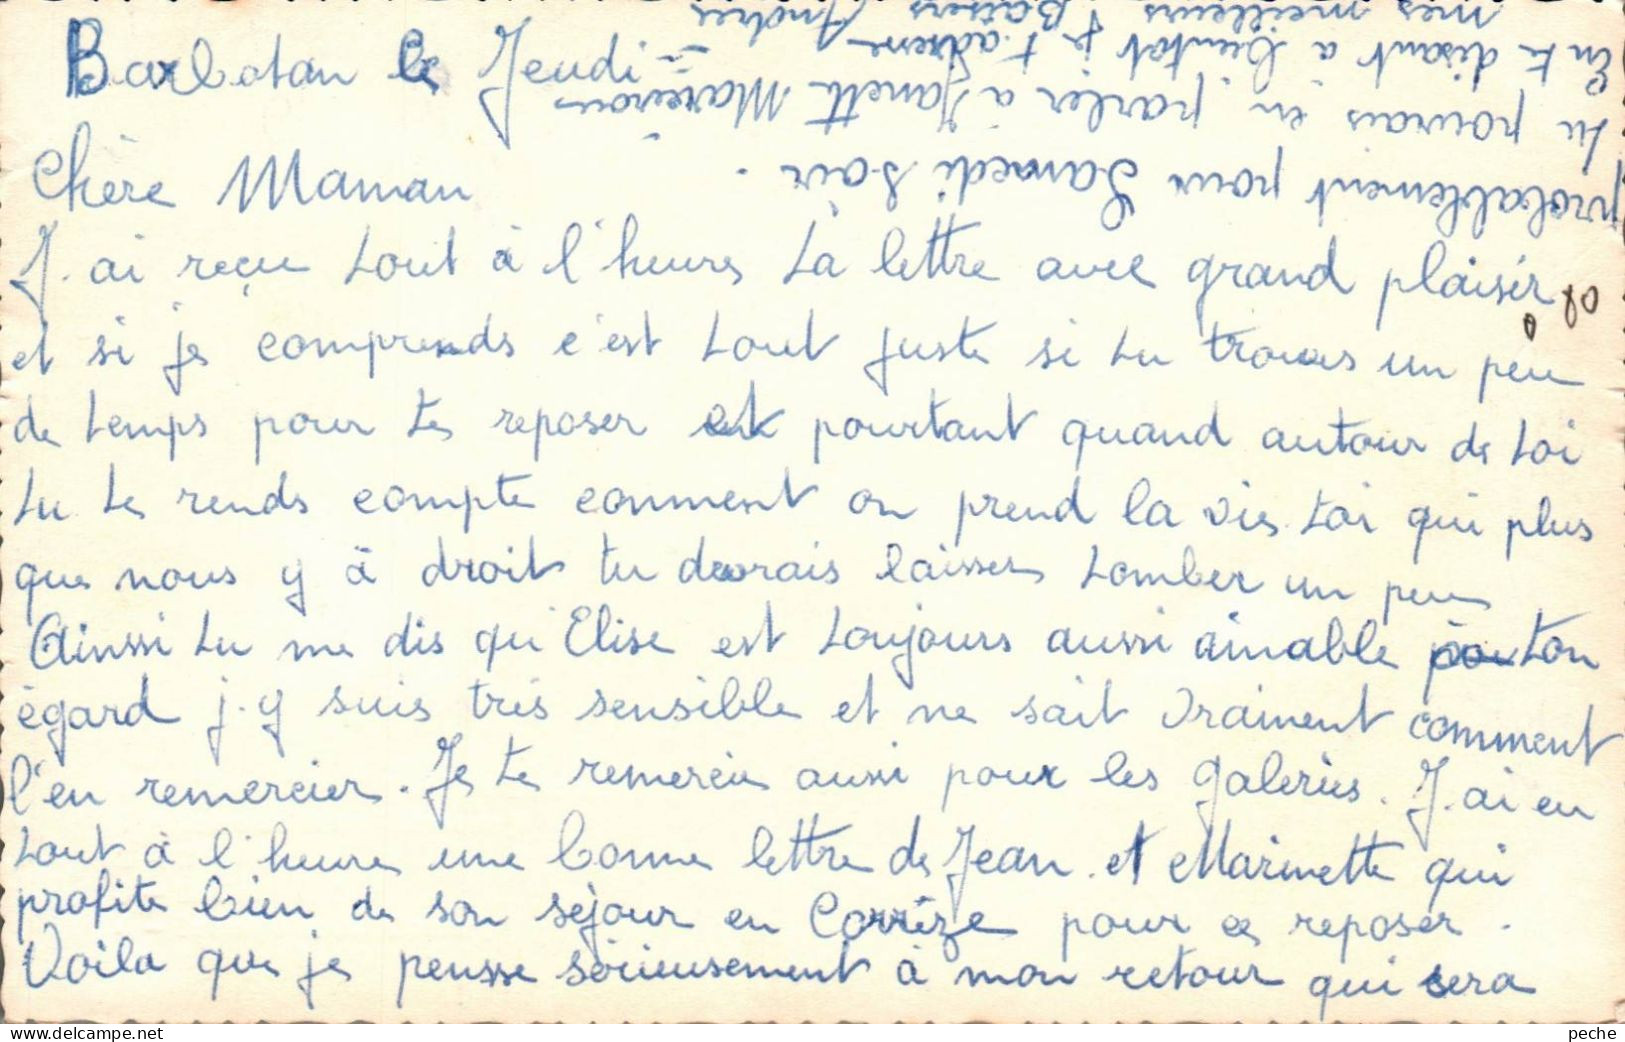 Barbotan le Jeudi
Chère Maman
J.ai reçu tout à l'heure ta lettre avec grand plaisir
et si je comprends c'est tout juste si tu trouves un peu
de temps pour te reposer et pourtant quand autour de toi
tu te rends compte comment on prend la vie toi qui plus
que nous y à droit tu devrais laisser tomber un peu
Ainsi tu me dis qu'Elise est toujours aussi aimable ton
égard j.y suis très sensible et ne sait vraiment comment
l'en remercier. Je te remercie aussi pour les galeries. J.ai eu
tout à l'heure une bonne lettre de Jean et Marinette qui
profite bien de son séjour en Corrèze pour ce reposer.
Voila que je pensse sérieusement à mon retour qui sera
probablement pour Samedi soir.
tu pourrais en parler à Janette
En te disant a bientot je t.adresse
mes meilleurs Baisers
peche